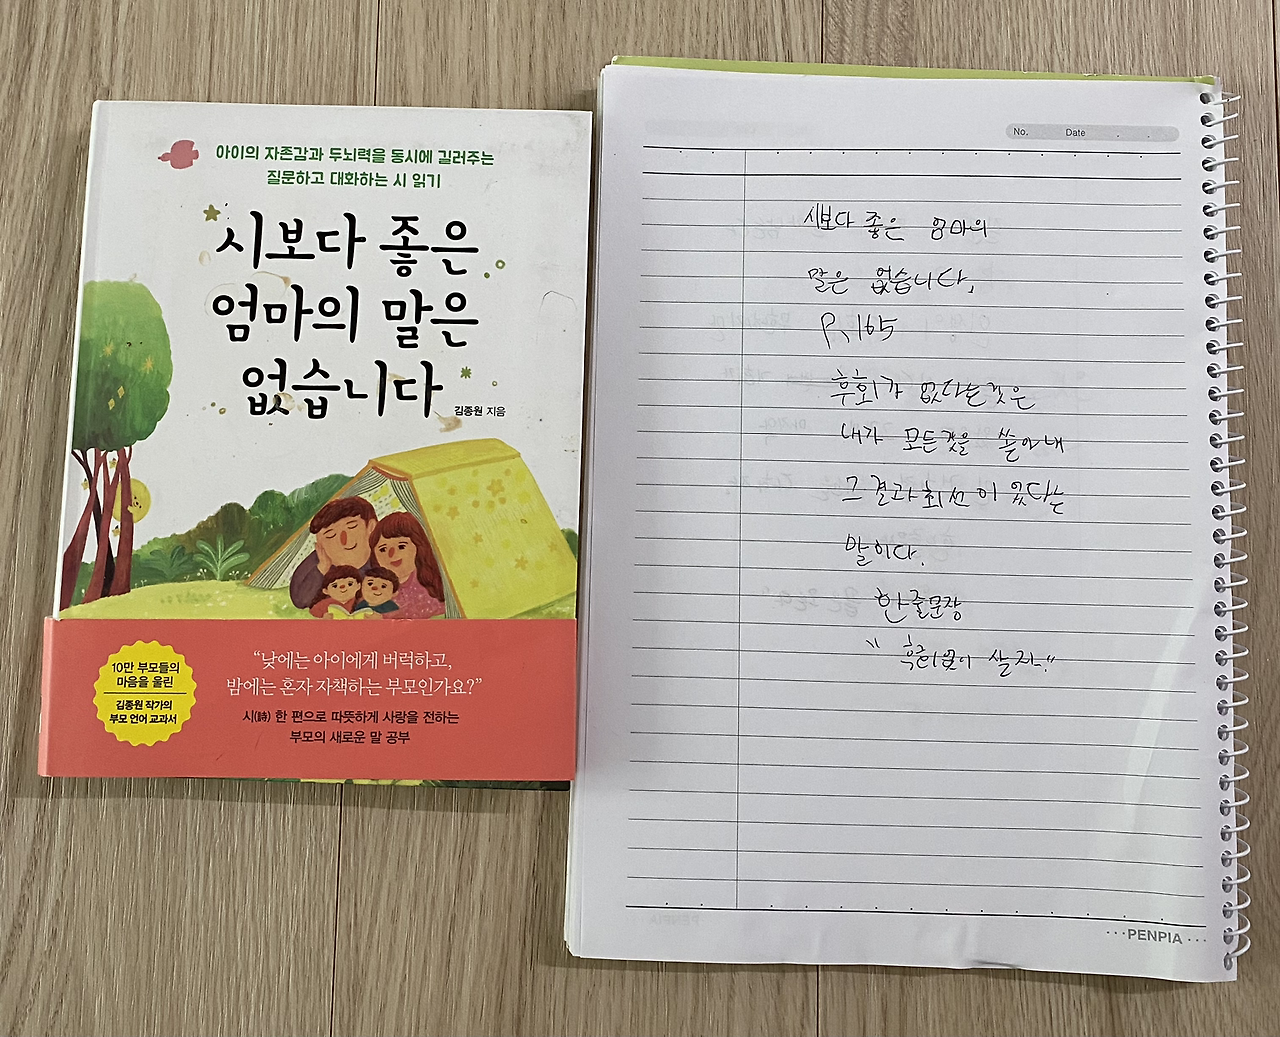 아이의 자존감과 두뇌력을 동시에 길러주는
질문하고 대화하는 시 읽기
시보다 좋은
엄마의 말은
없습니다
김종원 지음
10만 부모들의
마음을 울린
김종원 작가의
부모 언어 교과서
“낮에는 아이에게 버럭하고,
밤에는 혼자 자책하는 부모인가요?”
시(詩) 한 편으로 따뜻하게 사랑을 전하는
부모의 새로운 말 공부
No. Date
시보다 좋은 엄마의
말은 없습니다.
P.165
후회가 없다는것은
내가 모든것을 쏟아내
그결과 최선이 있다는
말이다.
한줄문장
"후회없이 살자."
PENPIA